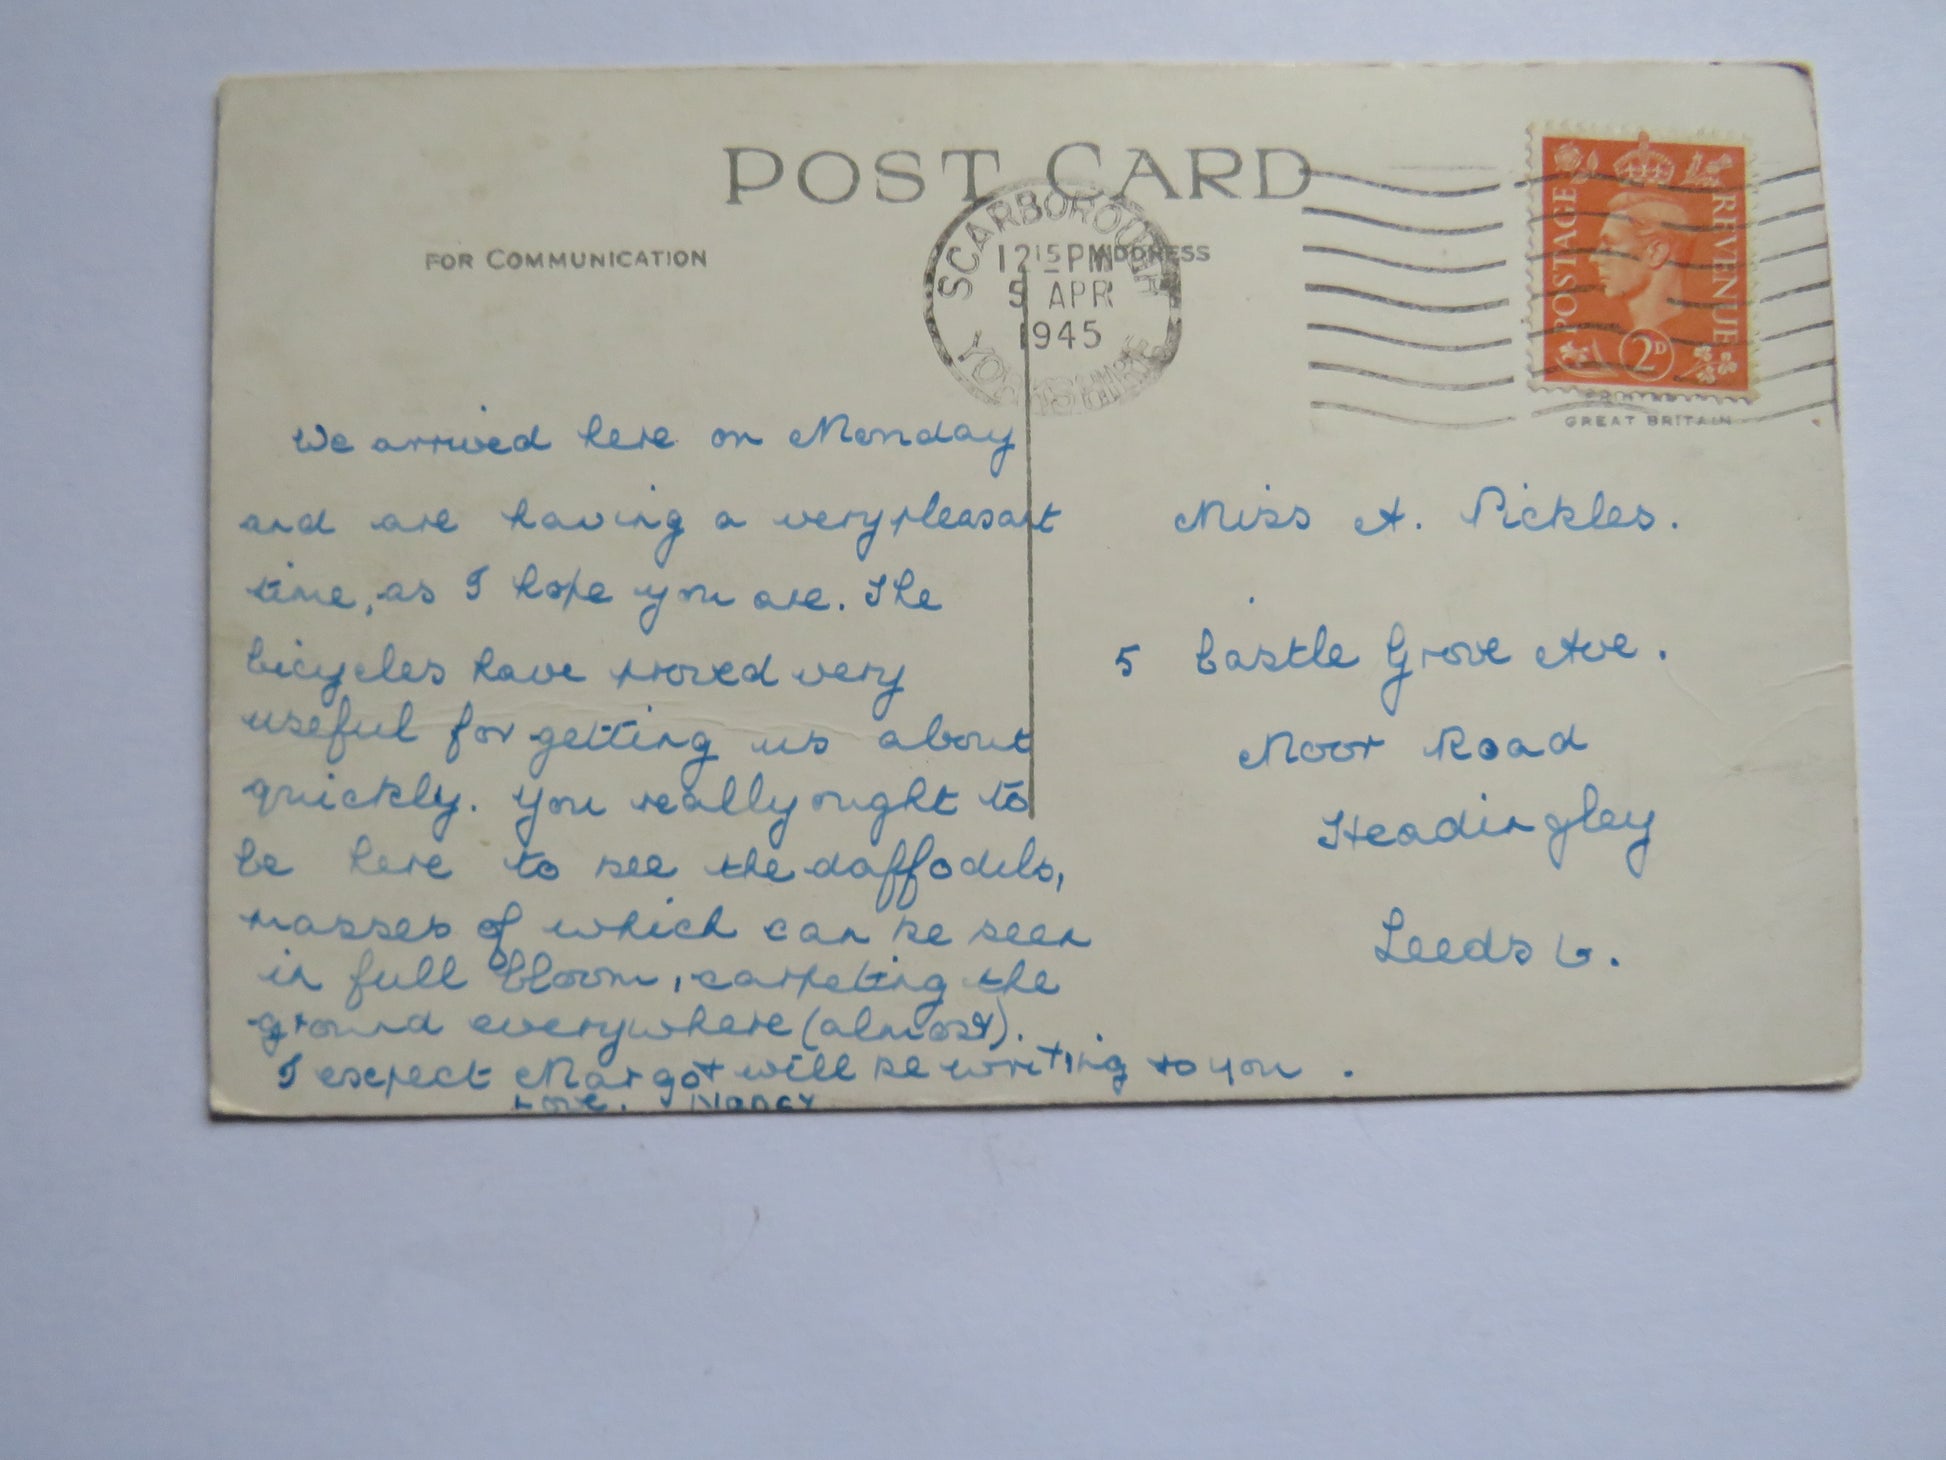 POST CARD
FOR COMMUNICATION
ADDRESS
SCARBOROUGH
12 15 PM
5 APR
1945
YORKSHIRE
POSTAGE
REVENUE
2D
GREAT BRITAIN
We arrived here on Monday
and are having a very pleasant
time, as I hope you are. The
bicycles have proved very
useful for getting us about
quickly. You really ought to
be here to see the daffodils,
masses of which can be seen
in full bloom, carpeting the
ground everywhere (almost).
I expect Margot will be writing to you.
Love, Nancy
Miss A. Pickles.
5 Castle Grove Ave.
Moor Road
Headingley
Leeds 6.